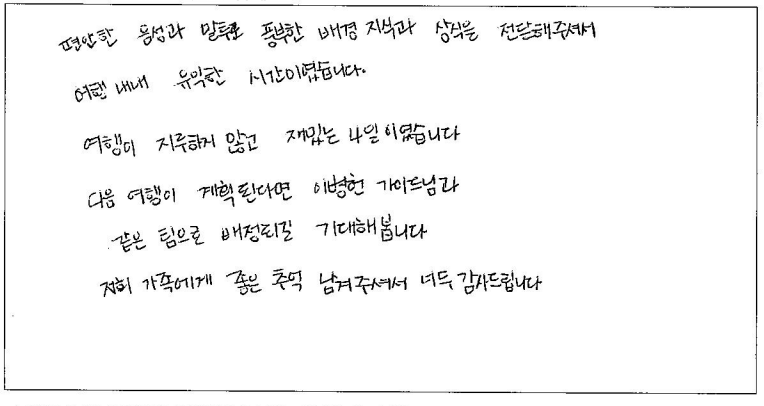 편안한 음성과 말투로 풍부한 배경 지식과 상식을 전달해주셔서
여행 내내 유익한 시간이였습니다.
여행이 지루하지 않고 재밌는 4일이였습니다
다음 여행이 계획된다면 이병헌 가이드님과
같은 팀으로 배정되길 기대해봅니다
저희 가족에게 좋은 추억 남겨주셔서 너무 감사드립니다